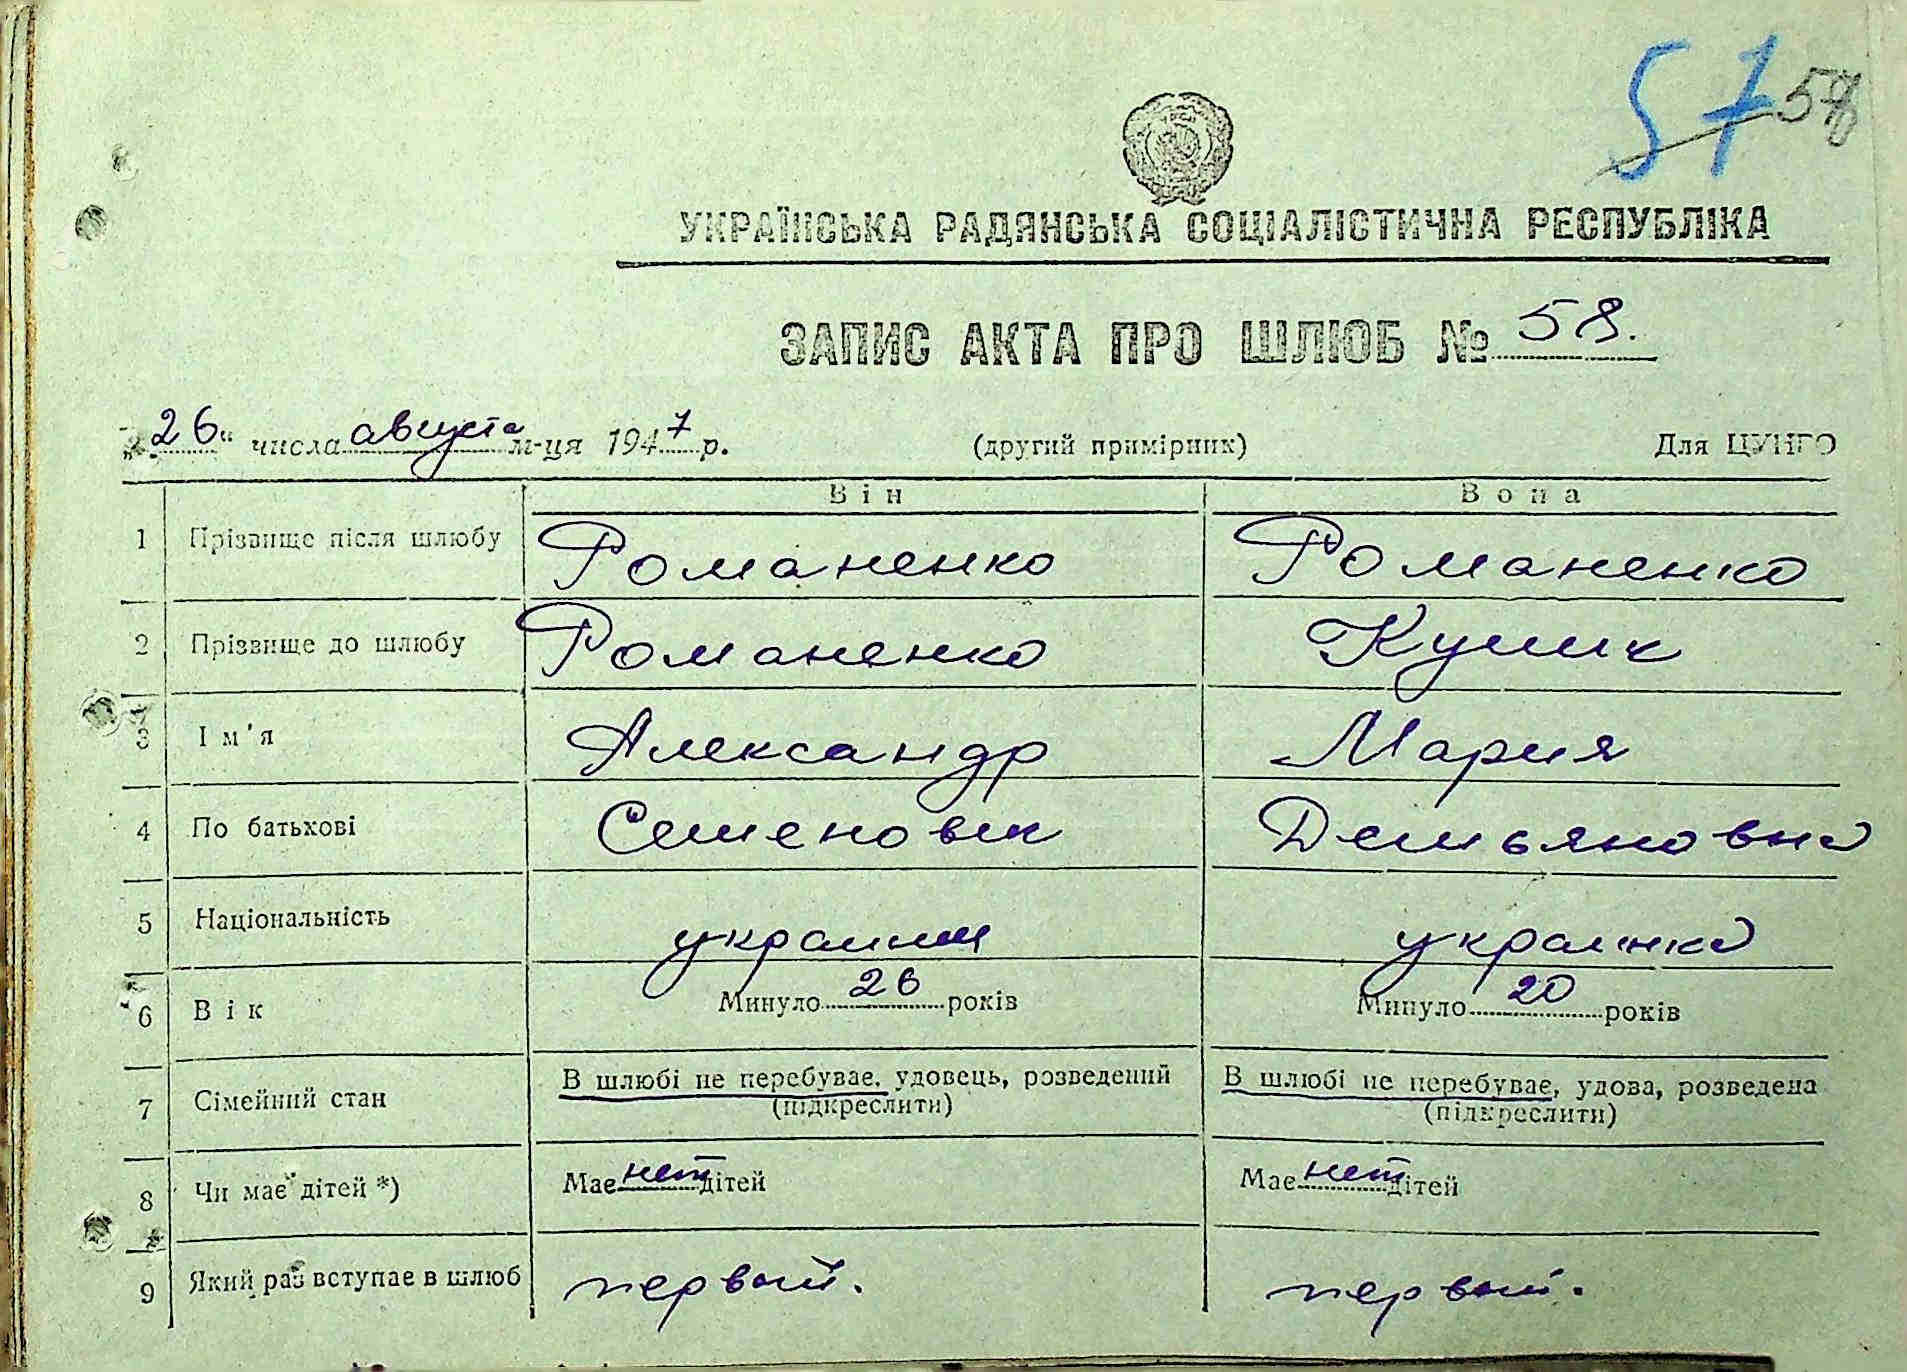 57 58
УКРАЇНСЬКА РАДЯНСЬКА СОЦІАЛІСТИЧНА РЕСПУБЛІКА
ЗАПИС АКТА ПРО ШЛЮБ № 58.
„26“ числа августа м-ця 1947 р. (другий примірник) Для ЦУНГО
Він Вона
1 Прізвище після шлюбу Романенко Романенко
2 Прізвище до шлюбу Романенко
3 Ім'я Александр Мария
4 По батькові Семенович Демьяновна
5 Національність украинец украинка
6 Вік Минуло 26 років Минуло 20 років
7 Сімейний стан В шлюбі не перебуває, удовець, розведений В шлюбі не перебуває, удова, розведена
(підкреслити) (підкреслити)
8 Чи має дітей *) Має нет дітей Має нет дітей
9 Який раз вступає в шлюб первый. первый.